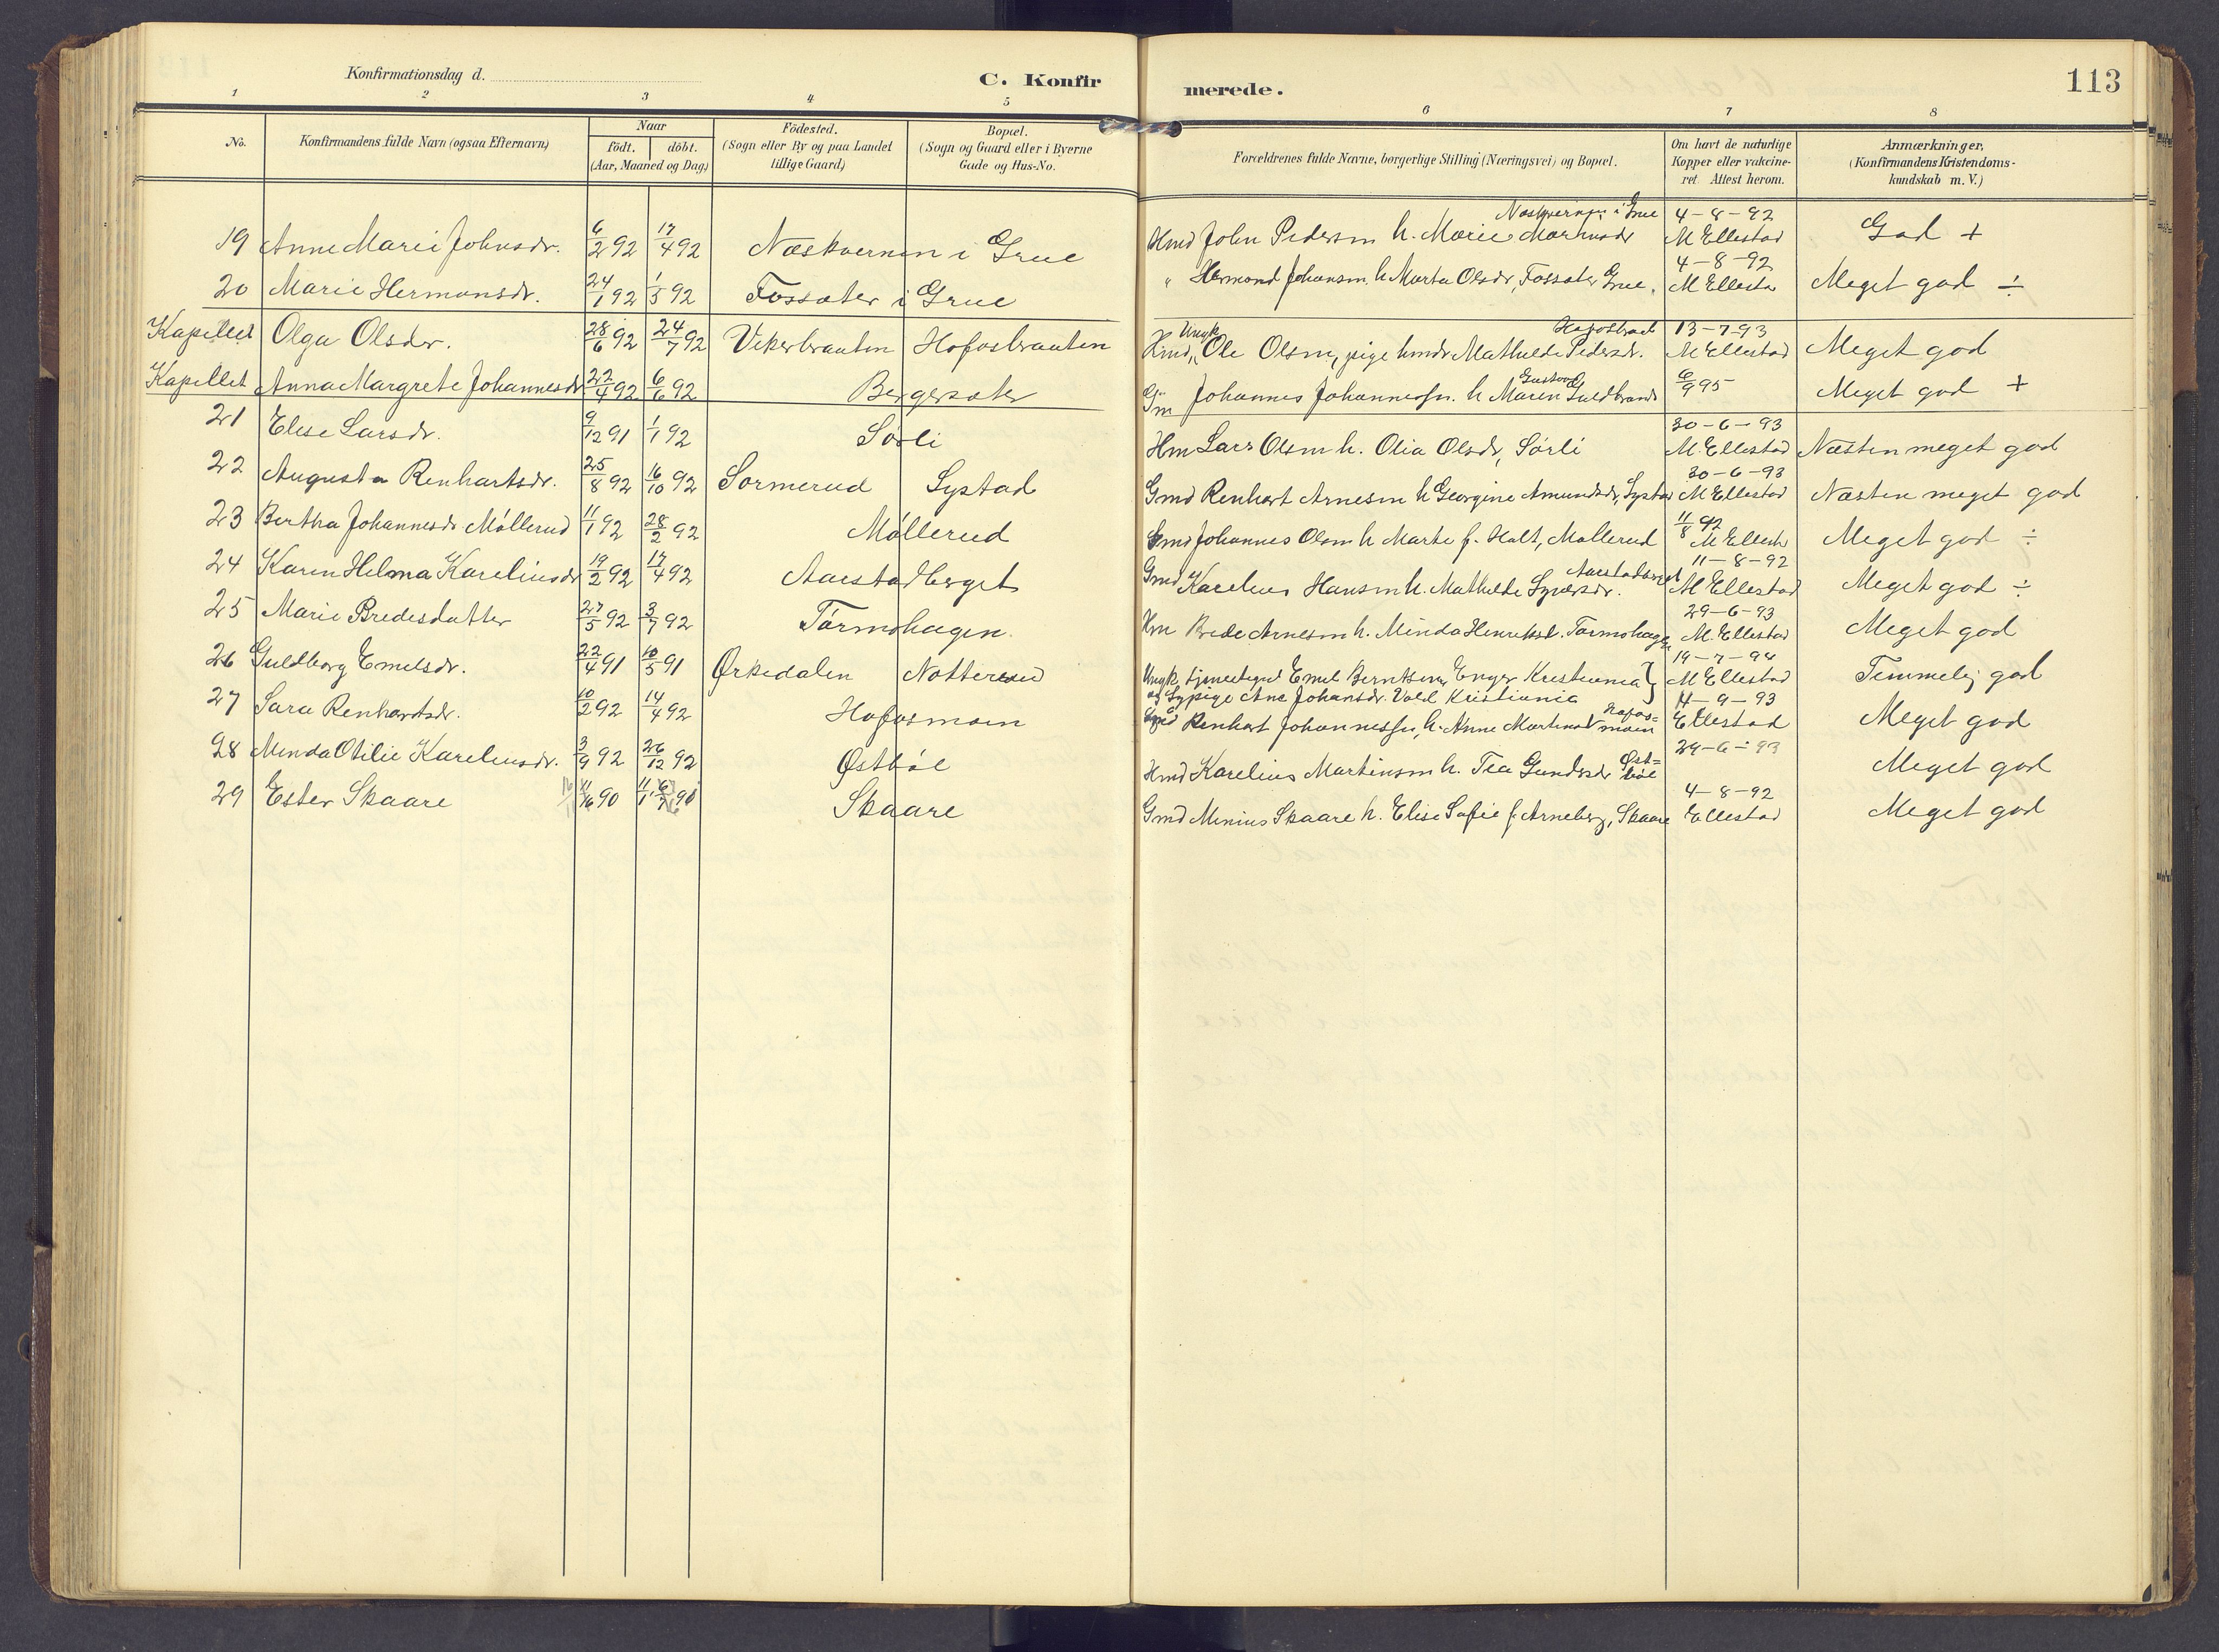 Konfirmationsdag d.
C. Konfir
merede.
113
1 2 3 4 5 6 7 8
No.
Konfirmandens fulde Navn (ogsaa Efternavn)
Naar
födt. döbt.
(Aar, Maaned og Dag)
Födested.
(Sogn eller By og paa Landet
tillige Gaard)
Bopæl.
(Sogn og Gaard eller i Byerne
Gade og Hus-No.
Forældrenes fulde Navne, borgerlige Stilling (Næringsvei) og Bopæl.
Om havt de naturlige
Kopper eller vakcine-
ret Attest herom.
Anmærkninger,
(Konfirmandens Kristendoms-
kundskab m. V.)
Næskvernen i Grue 4-8-92
19 Anne Marie Johnsdr. 6/2 92 17/4 92 Næskvernen i Grue Hmd John Pedersen h. Marie Marthinsdr M Ellestad God +
4-8-92
20 Marie Hermansdr. 24/1 92 1/5 92 Fossæter i Grue " Hermand Johansen h Marta Olsdr, Fossæter Grue. M Ellestad Meget god ÷
Ungk Hofosbraat 13-7-93
Kapellet Olga Olsdr. 28/6 92 24/7 92 Vikerbraaten Hofosbraaten Hmd, Ole Olsen, pige hmdr Mathilde Pedersdr. M Ellestad Meget god
Gustava 6/9 95
Kapellet Anna Margrete Johannesdr 22/4 92 6/6 92 Bergersæter Gm Johannes Johannessen. h Maren Guldbrands Meget god +
30-6-93
21 Elise Larsdr. 9/12 91 1/1 92 Sørli Hm Lars Olsen h. Olia Olsdr, Sørli M. Ellestad Næsten meget god
30-6-93
22 Augusta Renhartsdr. 25/8 92 16/10 92 Sormerud Systad Gmd Renhart Arnesen h Georgine Amundsdr, Systad M Ellestad Næsten meget god
11/8 92
23 Bertha Johannesdr. Møllerud 11/1 92 28/2 92 Møllerud Gmd Johannes Olsen h Marte f. Holt, Møllerud M Ellesta Meget god ÷
Aarstadberget 11-8-92
24 Karen Helma Kareliusdr 19/2 92 17/4 92 Aarstadberget Gmd Karelius Hansen h. Mathilde Syversdr. M Ellestad Meget god ÷
29-6-93
25 Marie Bredesdatter 27/5 92 3/7 92 Tørmohagen. Hm Brede Arnesen h. Minda Henriksd. Tørmohagen M. Ellestad Meget god
19-7-94
26 Guldborg Emelsdr. 22/4 91 10/5 91 Ørkedalen Notterud Ungk. tjenestegut Emil Berntsen, Enger Kristiania } M Ellestad Temmelig god
og Sypige Ane Johansdr. Vold Kristiania 4-9-93
27 Sara Renhartsdr. 10/2 92 14/4 92 Hofosmoen Gmd Renhart Johannessen, h. Anne Martinsd Hofos=moen Ellestad Meget god
29-6-93
28 Minda Otilie Kareliusdr. 3/9 92 26/12 92 Østbøl Hmd Karelius Martinsen h. Tea Gundersdr Øst=bøl Meget god
4-8-92
29 Ester Skaare 90 90 Skaare Gmd Minius Skaare h. Elise Sofie f. Arneberg, Skaare Ellestad Meget god